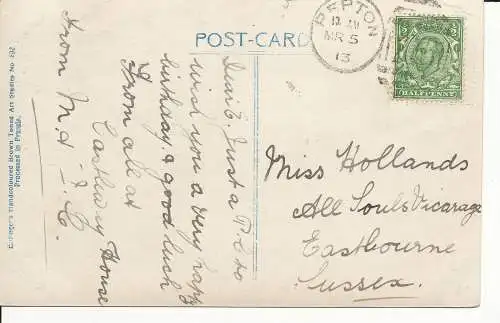 POST-CARD
REPTON
MR 5
13
HALFPENNY
Dear E. Just a P.C to
wish you a very happy
birthday & good luck
From all at
Easthway House
From M. & J. C.
Miss Hollands
All Souls Vicarage
Eastbourne
Sussex.
Handcoloured Brown Toned Art Series No
Processed in France.